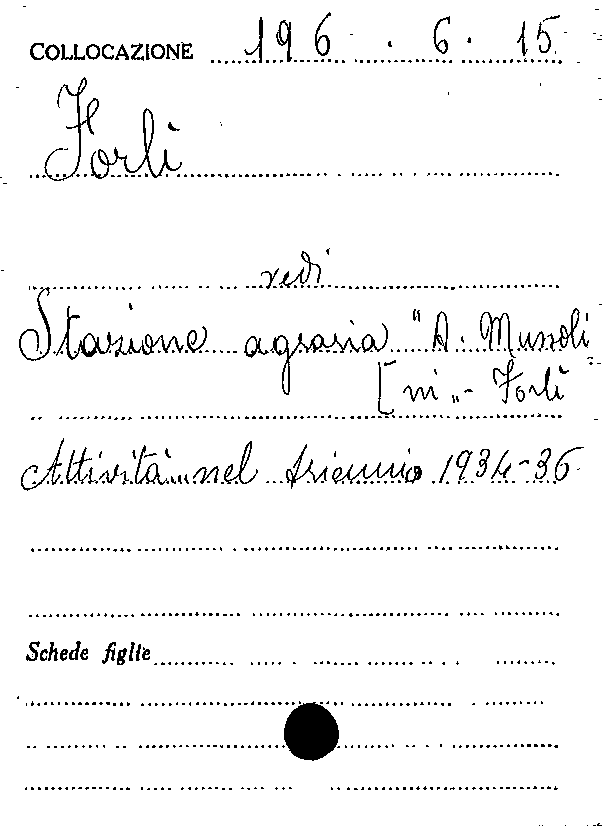 COLLOCAZIONE 196 . 6 . 15
Forlì
vedi
Stazione agraria "A. Mussoli-
[ni" - Forlì
Attività nel triennio 1934-36
Schede figlie